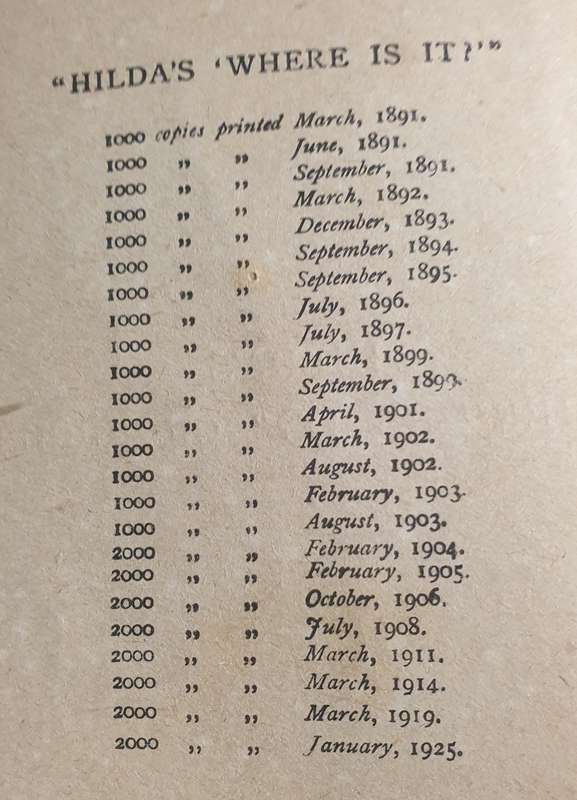 “HILDA'S ‘WHERE IS IT?’”
1000 copies printed March, 1891.
1000 „ „ June, 1891.
1000 „ „ September, 1891.
1000 „ „ March, 1892.
1000 „ „ December, 1893.
1000 „ „ September, 1894.
1000 „ „ September, 1895.
1000 „ „ July, 1896.
1000 „ „ July, 1897.
1000 „ „ March, 1899.
1000 „ „ September, 1899.
1000 „ „ April, 1901.
1000 „ „ March, 1902.
1000 „ „ August, 1902.
1000 „ „ February, 1903.
1000 „ „ August, 1903.
2000 „ „ February, 1904.
2000 „ „ February, 1905.
2000 „ „ October, 1906.
2000 „ „ July, 1908.
2000 „ „ March, 1911.
2000 „ „ March, 1914.
2000 „ „ March, 1919.
2000 „ „ January, 1925.